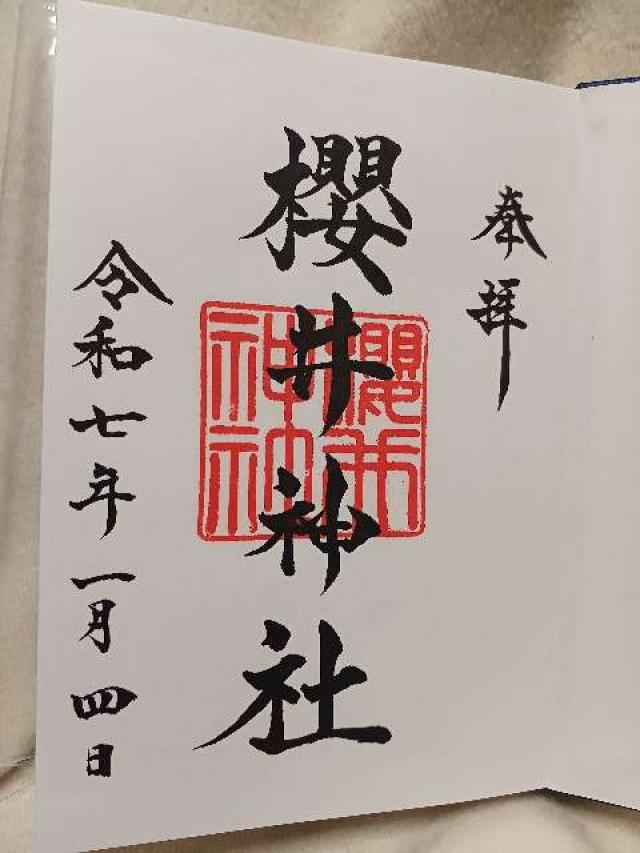 奉拝
櫻井神社
櫻井
神社
令和七年一月四日